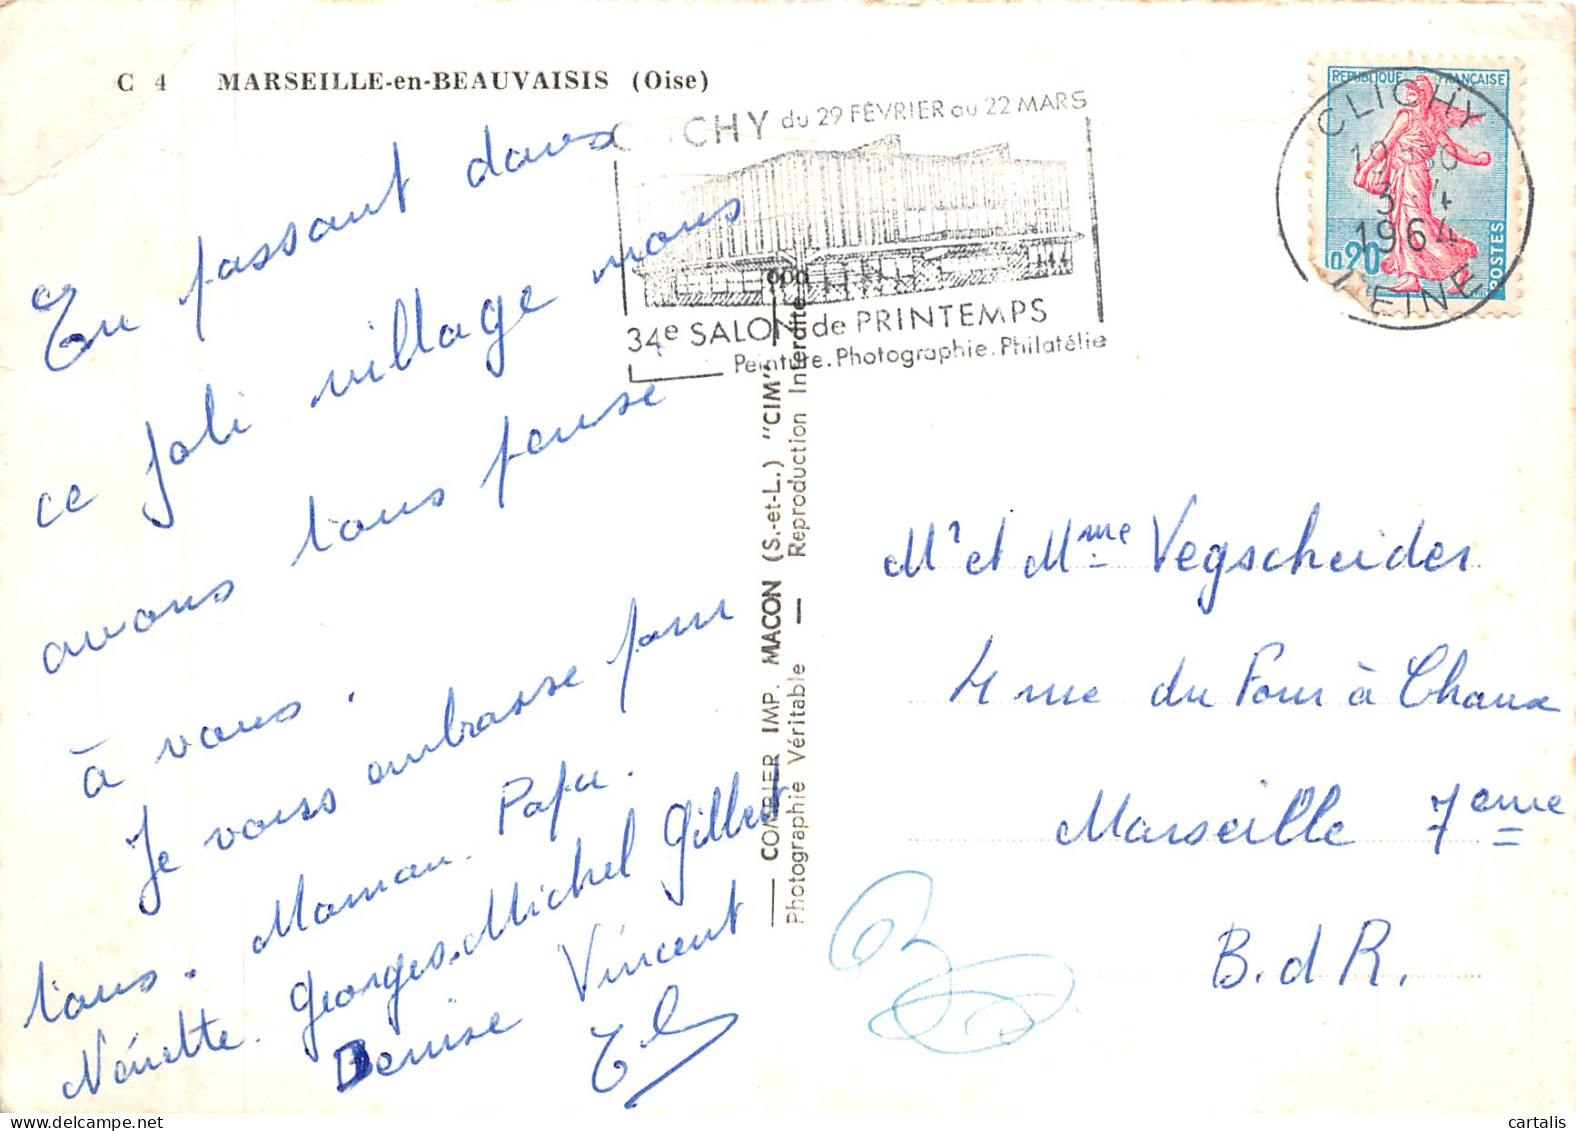 C 4 MARSEILLE-en-BEAUVAISIS (Oise)
CLICHY du 29 FÉVRIER au 22 MARS
34e SALON de PRINTEMPS
Peinture. Photographie. Philatélie
REPUBLIQUE FRANÇAISE
0,20
POSTES
CLICHY
1964
SEINE
En passant dans
ce joli village nous
avons tous pensé
à vous.
Je vous embrasse pour
tous. Maman. Papa.
Nénette. Georges. Michel Gilbert
Denise Vincent
COMBIER IMP. MACON (S.-et-L.) "CIM"
Photographie Véritable — Reproduction Interdite
Mr et Mme Vegscheider
4 rue du Four à Chaux
Marseille 7eme
B. d R.
cartalis
delcampe.net